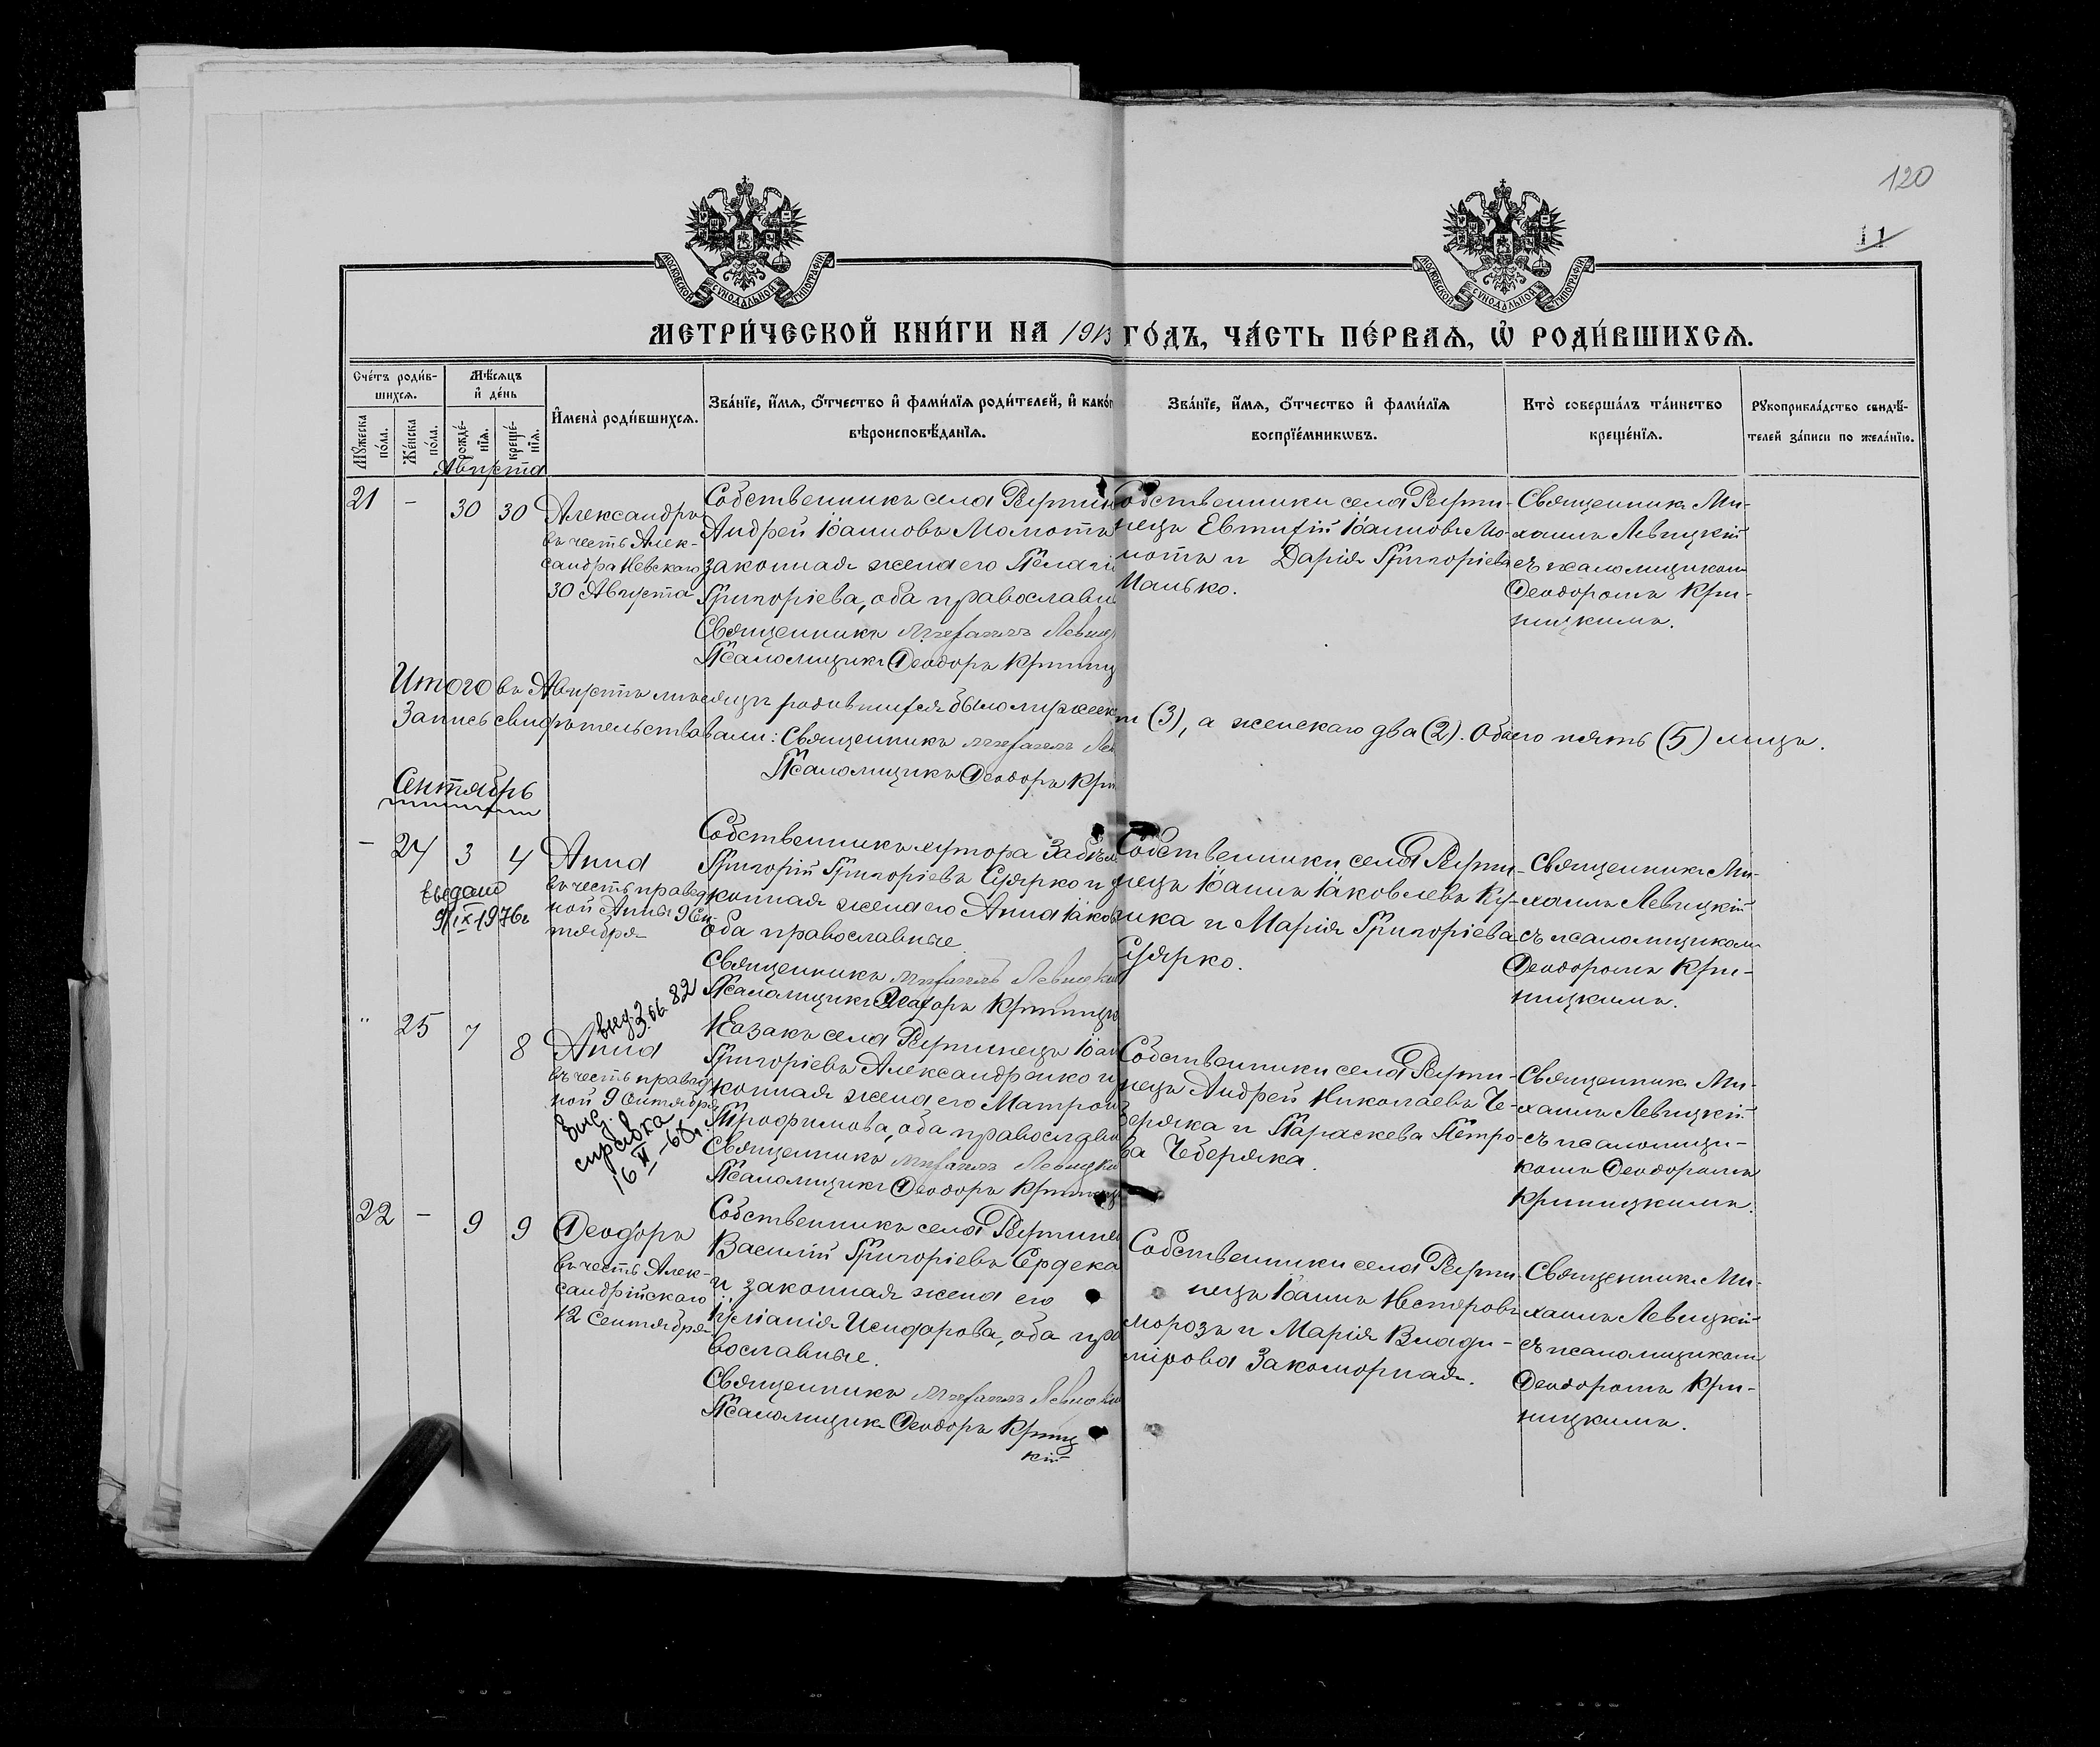 120
11
МОСКОВСКОЙ СѴНОДАЛЬНОЙ ТИПОГРАФІИ
МОСКОВСКОЙ СѴНОДАЛЬНОЙ ТИПОГРАФІИ
МЕТРИ́ЧЕСКОЙ КНИ́ГИ НА 1913 ГО́ДЪ, ЧА́СТЬ ПЕ́РВАѦ, Ѡ РОДИ́ВШИХСѦ.
Счетъ роди́в-
шихсѧ.
Мѣ́сѧцъ
и҆ де́нь
Мꙋ́жеска
по́ла.
Же́нска
по́ла.
рожде́-
нїѧ.
креще́-
нїѧ.
И҆мена̀ роди́вшихсѧ.
Зва́нїе, и҆́мѧ, ѻ҆́тчество и҆ фами́лїѧ роди́телей, и҆ како́г
вѣроисповѣ́данїѧ.
Зва́нїе, и҆́мѧ, ѻ҆́тчество и҆ фами́лїѧ
воспрїе́мникѡвъ.
Кто̀ соверша́лъ та́инство
креще́нїѧ.
Рꙋкоприкла́дство свидѣ́-
телей за́писи по жела́нїю.
Августа
21 - 30 30
Александръ
въ честь Алек-
сандра Невскаго
30 Августа
Собственникъ села
Андрей Іоанновъ Момотъ
законная жена его Пелагі
Григоріева, оба православн
Священникъ Михаилъ Левиц
Псаломщикъ Ѳеодоръ Криниц
Собственники села
нецъ Евтихій Іоанновъ Мо-
мотъ и Дарія Григоріева
Манько.
Священникъ Ми-
хаилъ Левицкій
съ псаломщикомъ
Ѳеодоромъ Кри-
ницкимъ.
Итого въ Августѣ мѣсяцѣ родившихся было мужеск
и (3), а женскаго два (2). Обоего пять (5) лицъ.
Запись свидѣтельствовали: Священникъ Михаилъ Лев
Псаломщикъ Ѳеодоръ Кри
Сентябрь
- 24 3 4
выдано
9/IX 1976г
Анна
въ честь правед
ной Анны 9 Сен
тября
Собственникъ хутора
Григорій Григоріевъ Цярко и
конная жена его Анна Іаков
оба православные
Священникъ Михаилъ Левицкі
Псаломщикъ Ѳеодоръ Криницк
Собственники села
нецъ Іоаннъ Іаковлевъ Ку-
ика и Марія Григоріева
Цярко.
Священникъ Ми-
хаилъ Левицкій
съ псаломщикомъ
Ѳеодоромъ Кри-
ницкимъ.
" 25 7 8
выд. 3.06.82
Анна
въ честь правед
ной 9 Сентября
справка
16 II-68г.
Казакъ села
Григоріевъ Александренко и
конная жена его Матрон
Трофимова, оба православн
Священникъ Михаилъ Левицкі
Псаломщикъ Ѳеодоръ Криниц
Собственники села
нецъ Андрей Николаевъ Че-
беряка и Параскева Петро-
ва Чеберяка.
Священникъ Ми-
хаилъ Левицкій
съ псаломщи-
комъ Ѳеодоромъ
Криницкимъ.
22 - 9 9
Ѳеодоръ
въ честь Алек-
сандрійскаго
12 Сентября
Собственникъ села
Василій Григоріевъ Ердека
и законная жена его
Іуліанія Исидорова, оба пра
вославные.
Священникъ Михаилъ Левицкі
Псаломщикъ Ѳеодоръ Криниц
кій
Собственники села
нецъ Іоаннъ Несторовъ
Морозъ и Марія Влади-
мірова Закоморная.
Священникъ Ми-
хаилъ Левицкій
съ псаломщикомъ
Ѳеодоромъ Кри-
ницкимъ.